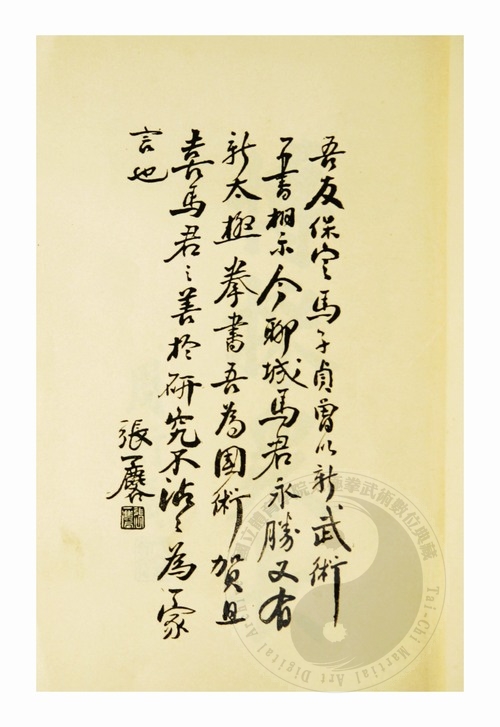 吾友保定馬子貞曾以新武術
一書相示今聊城馬君永勝又有
新太極拳書吾為國術賀且
喜馬君之善於研究不沾沾為一家
言也
張一麐
太極拳武術數位典藏
Tai-Chi Martial Art Digital